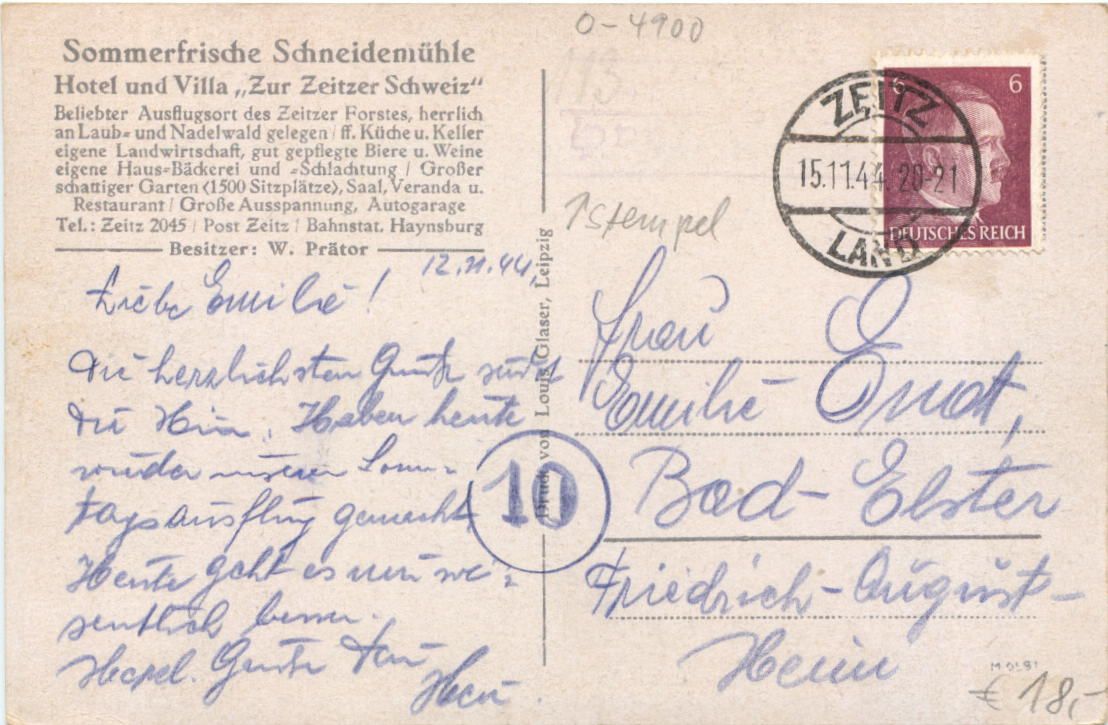 O-4900
Sommerfrische Schneidemühle
Hotel und Villa „Zur Zeitzer Schweiz“
Beliebter Ausflugsort des Zeitzer Forstes, herrlich
an Laub- und Nadelwald gelegen / ff. Küche u. Keller
eigene Landwirtschaft, gut gepflegte Biere u. Weine
eigene Haus-Bäckerei und -Schlachtung / Großer
schattiger Garten (1500 Sitzplätze), Saal, Veranda u.
Restaurant / Große Ausspannung, Autogarage
Tel.: Zeitz 2045 / Post Zeitz / Bahnstat. Haynsburg
Besitzer: W. Prätor
12.11.44.
Liebe Emilie!
Die herzlichsten Grüße
Haben heute
wieder unseren Sonn-
tagsausflug gemacht
Heute geht es mir we-
sentlich besser.
Herzl. Grüße
Druck von Louis Glaser, Leipzig
10
113
Stempel
6 6
DEUTSCHES REICH
ZEITZ
15.11.44. 20-21
LAND
Frau
Emilie
Bad-Elster
Friedrich-August-
Heim
€ 18,-